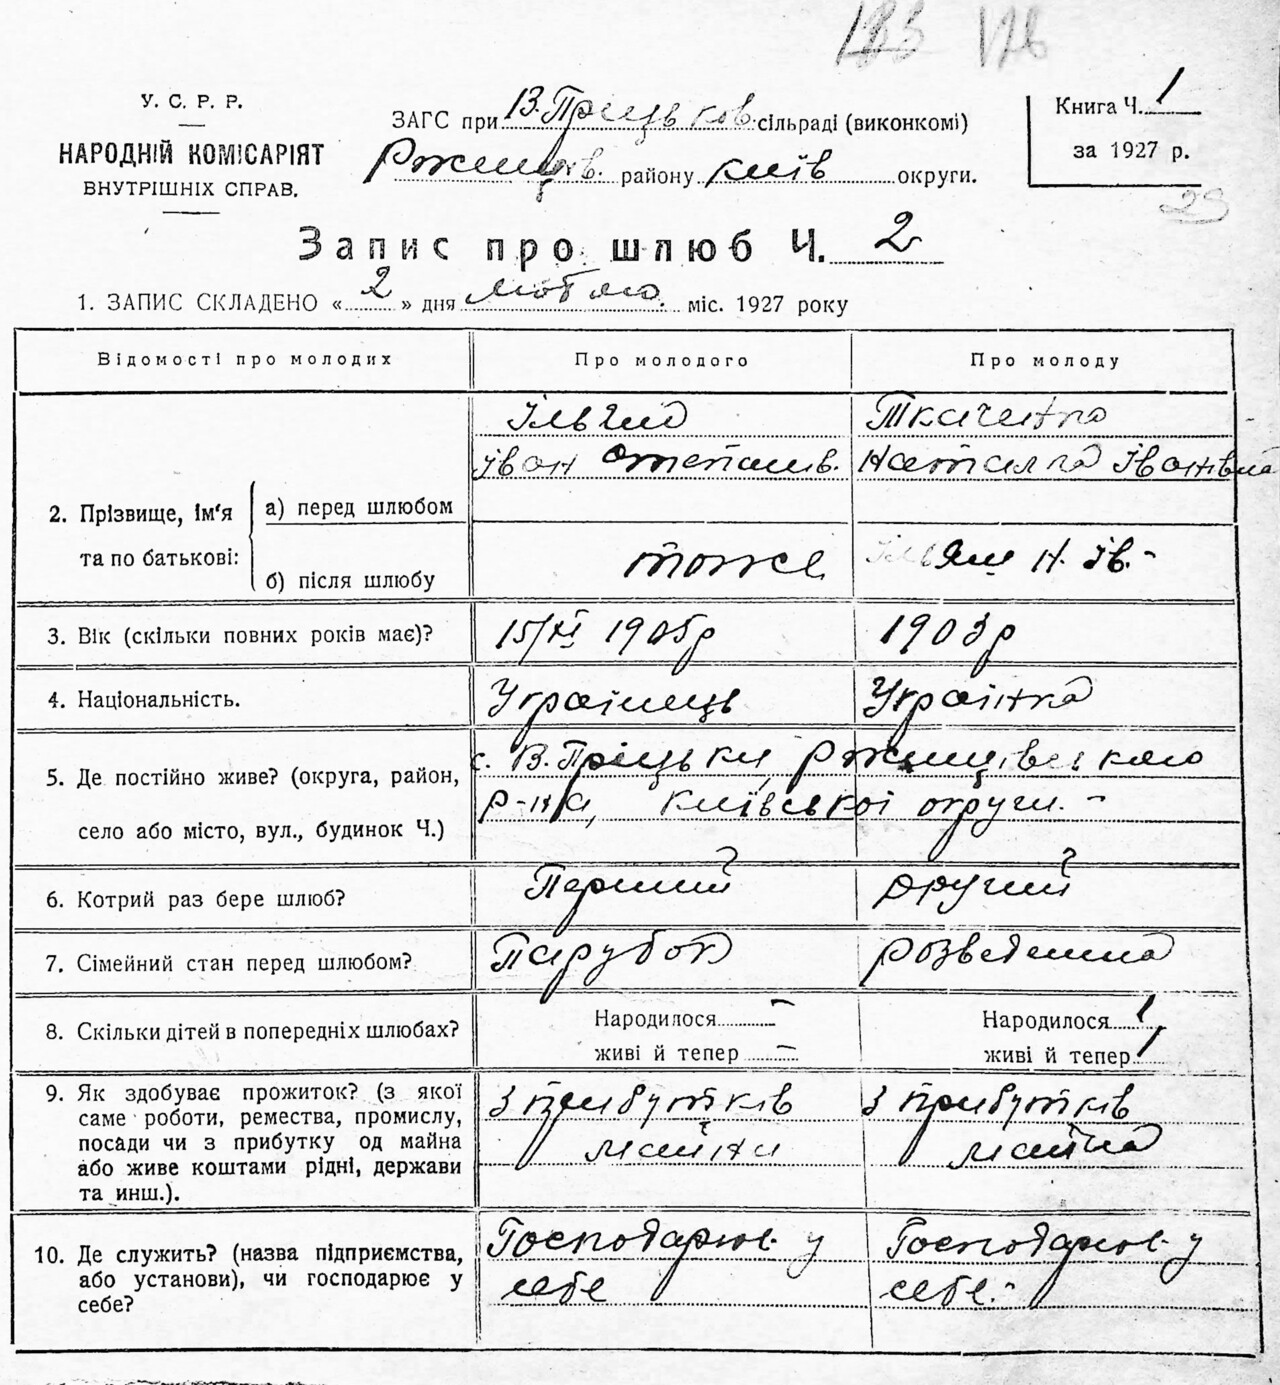 183 176
У. С. Р. Р.
НАРОДНІЙ КОМІСАРІЯТ
ВНУТРІШНІХ СПРАВ.
ЗАГС при В. Пріцьков. сільраді (виконкомі)
Ржищів. району Київ округи.
Книга Ч. 1
за 1927 р.
29
Запис про шлюб Ч. 2
1. ЗАПИС СКЛАДЕНО « 2 » дня лютого міс. 1927 року
Відомості про молодих Про молодого Про молоду
2. Прізвище, ім'я та по батькові:
а) перед шлюбом
Іван Степанів.
Ткаченко
Наталка Іванівна
б) після шлюбу
тоже
Н. Ів.-
3. Вік (скільки повних років має)? 15/XI 1905р 1903р
4. Національність. Українець Українка
5. Де постійно живе? (округа, район,
село або місто, вул., будинок Ч.)
с. В. Пріцьки, Ржищівського
р-на, Київської округи. -
6. Котрий раз бере шлюб? Перший Другий
7. Сімейний стан перед шлюбом? Парубок Розведенна
8. Скільки дітей в попередніх шлюбах?
Народилося - Народилося 1
живі й тепер - живі й тепер 1
9. Як здобуває прожиток? (з якої
саме роботи, ремества, промислу,
посади чи з прибутку од майна
або живе коштами рідні, держави
та инш.).
З прибутків З прибутків
майна майна
10. Де служить? (назва підприємства,
або установи), чи господарює у
себе?
Господарюв. у Господарюв. у
себе себе.-